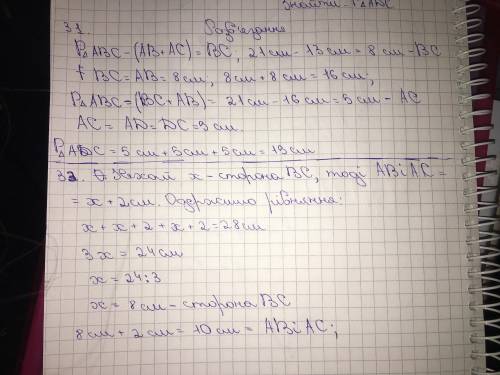 Знайти: P△ADC
31. Розв'язання
P△ABC-(AB+AC)=BC, 21см-13см=8см-BC
BC=AB=8см, 8см+8см=16см;
P△ABC-(BC+AB)=21см-16см=5см-AC
AC=AD=DC=5см.
P△ADC=5см+5см+5см=15см
32. Нехай x-сторона BC, тоді AB і AC=
=x+2см. Одержимо рівняння:
x+x+2+x+2=28см
3x=24см
x=24:3
x=8см-сторона BC
8см+2см=10см=AB і AC;